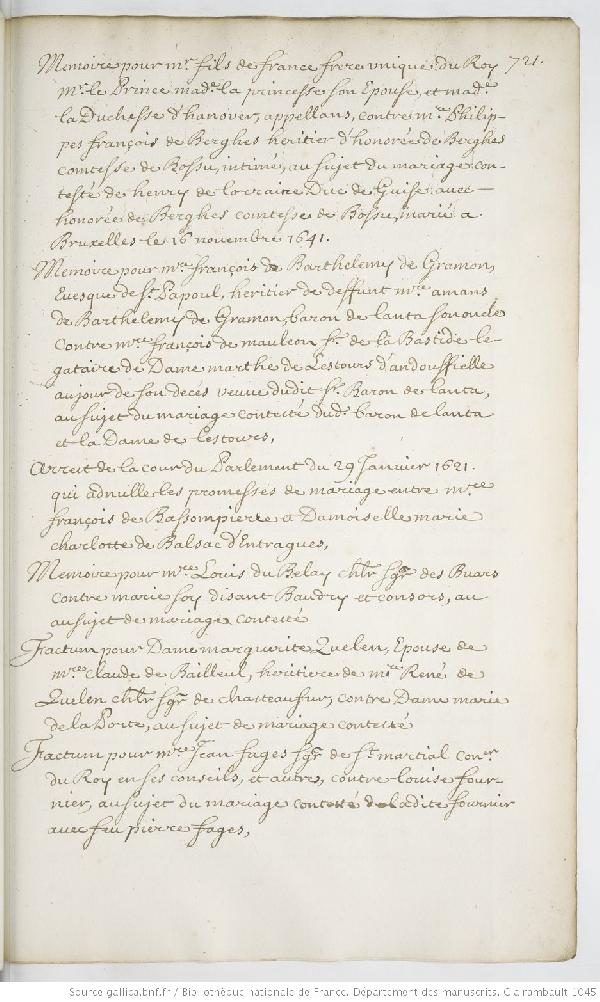 721.
Memoire pour mr. fils de france frere unique du Roy
mr. le Prince made. la princesse son Epouse, et made.
la Duchesse d'hanover, appellans, contre mre. Philip-
pes françois de Berghes heritier d'honorée de Berghes
comtesse de Bossu, intimé, au sujet du mariage con-
testé de henry de lorraine Duc de Guise avec
honorée de Berghes comtesse de Bossu, marié a
Bruxelles le 16 novembre 1641.
Memoire pour mre. françois de Barthelemy de Gramon,
Evesque de St. Papoul, heritier de deffunt mre. amans
de Barthelemy de Gramon, baron de lanta son oncle
contre mre. françois de mauleon Sr. de la Bastide le-
gataire de Dame marthe de Lestours d'andouffielle
au jour de son decés veuve dudit Sr. Baron de lanta,
au sujet du mariage contesté dud. baron de lanta
et la Dame de Lestours,
Arrest de la cour du Parlement du 29 Janvier 1621.
qui adnulle les promesses de mariage entre mre.
françois de Bassompierre et Damoiselle marie
charlotte de Balsac d'Entragues,
Memoire pour mre. Louis du Belay chlr. sgr. des Buars
contre marie soy disant Baudry et consors, au
au sujet de mariage contesté
Factum pour Dame marguerite Quelen, Epouse de
mre. Claude de Bailleul, heritiere de mre. René de
Quelen chlr. sgr. de chasteaufur, contre Dame marie
de la Porte, au sujet de mariage contesté
Factum pour mre. Jean fages sgr. de St. martial coner.
du Roy en ses conseils, et autre, contre louise four-
nier, au sujet du mariage contesté de ladite fournier
avec feu pierre fages,
Source gallica.bnf.fr / Bibliothèque nationale de France. Département des manuscrits. Clairambault 1045